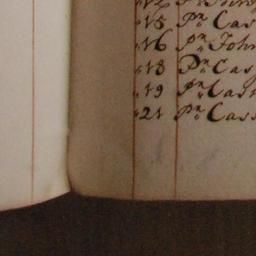 15 Pr. Cas
16 Pr. John
18 Pr. Cas
19 Pr. Cas
21 Pr. Cass